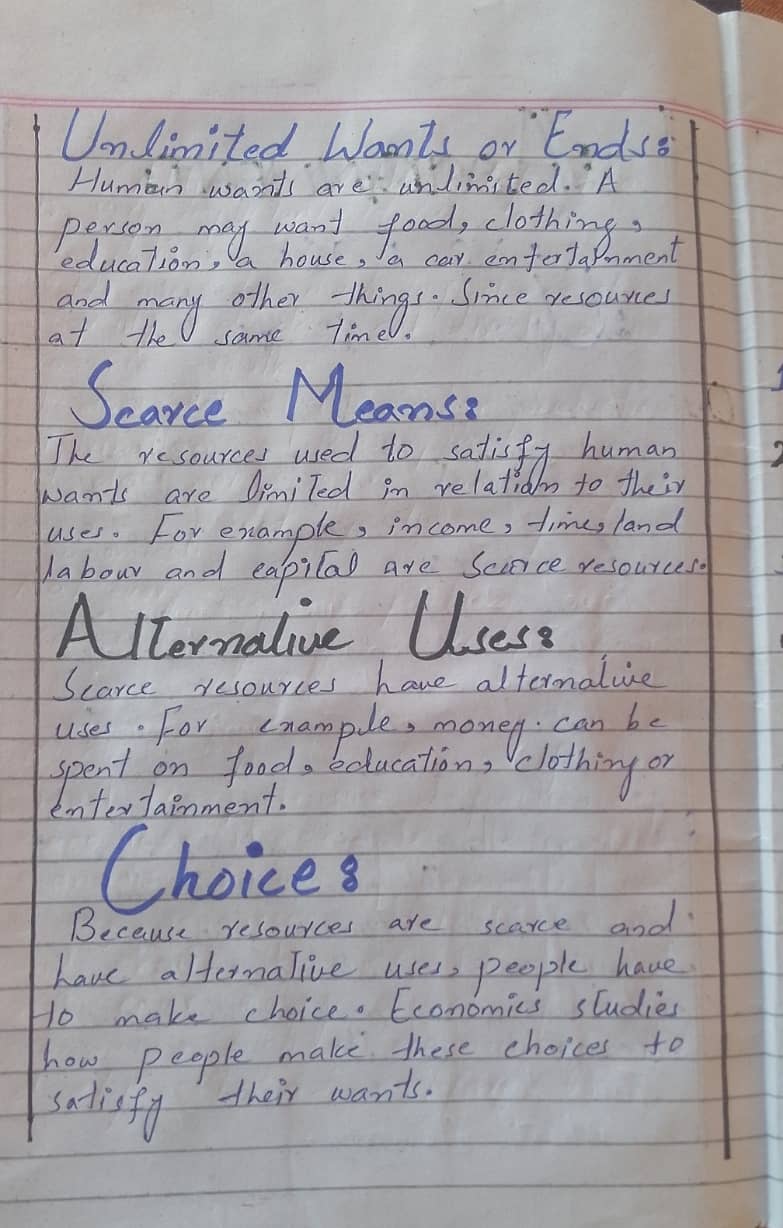 Unlimited Wants or Ends:
Human wants are unlimited. A
person may want food, clothing,
education, a house, a car entertainment
and many other things. Since resources
at the same time.
Scarce Means:
The resources used to satisfy human
wants are limited in relation to their
uses. For example, income, time, land
labour and capital are Scarce resources.
Alternative Uses:
Scarce resources have alternative
uses. For example, money can be
spent on food, education, clothing or
entertainment.
Choice:
Because resources are scarce and
have alternative uses, people have
to make choice. Economics studies
how people make these choices to
satisfy their wants.